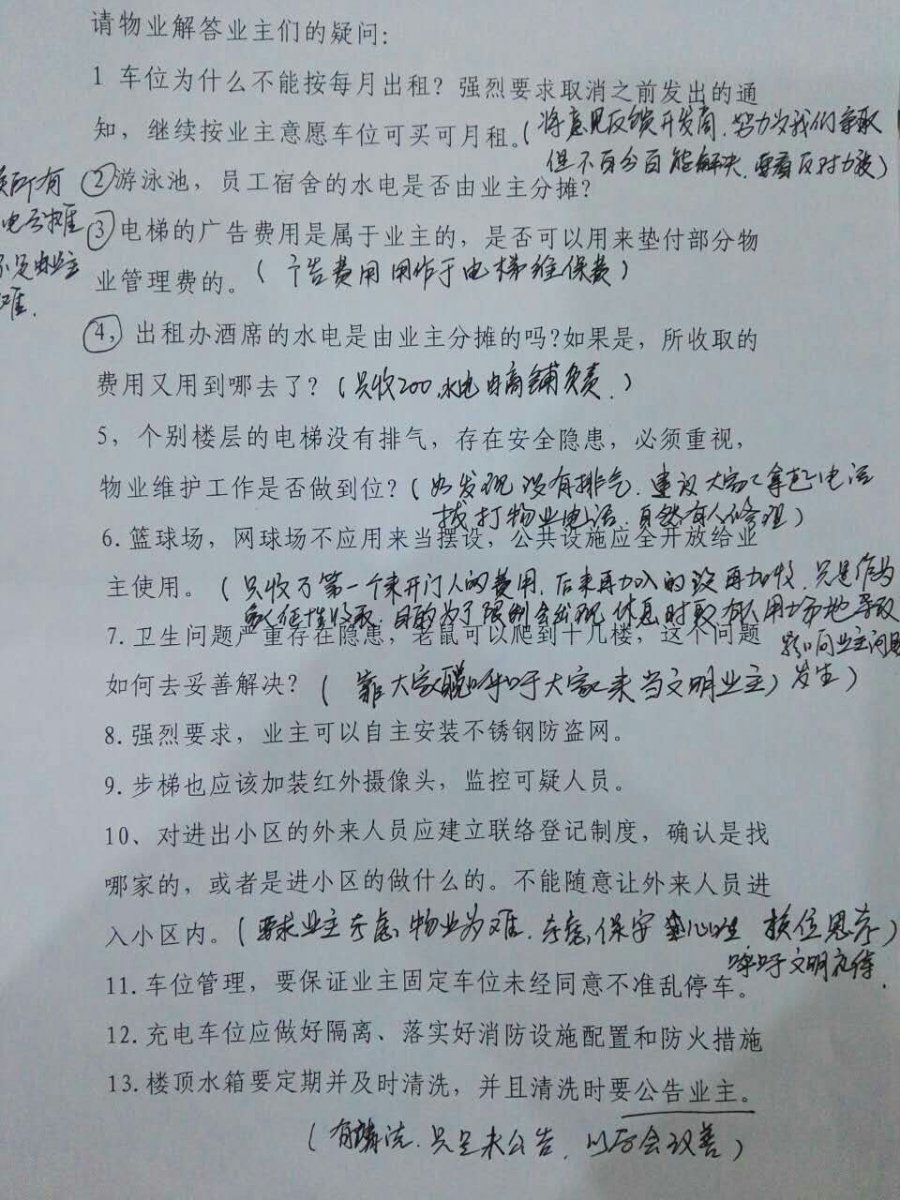 请物业解答业主们的疑问：
1 车位为什么不能按每月出租？强烈要求取消之前发出的通
知，继续按业主意愿车位可买可月租。（将意见反馈开发商，努力为我们争取
但不百分百能解决，要看反对力度）
所有
②游泳池，员工宿舍的水电是否由业主分摊？
电公摊
③电梯的广告费用是属于业主的，是否可以用来垫付部分物
不是由业主
业管理费的。（广告费用用作于电梯维保费）
摊.
④，出租办酒席的水电是由业主分摊的吗?如果是，所收取的
费用又用到哪去了？（只收200,水电由商铺负责.）
5，个别楼层的电梯没有排气，存在安全隐患，必须重视，
物业维护工作是否做到位？（如发现没有排气.建议大家拿起电话
打物业电话，自然有人修理）
6.篮球场，网球场不应用来当摆设，公共设施应全开放给业
主使用。（只收了第一个来开门人的费用.后来再加入的没再加收.只是作为
象征性收取.目的为了限制会出现休息时段有人用场地导致
7.卫生问题严重存在隐患，老鼠可以爬到十几楼，这个问题
影响业主问题
如何去妥善解决？（靠大家 呼吁大家来当文明业主）
发生）
8.强烈要求，业主可以自主安装不锈钢防盗网。
9.步梯也应该加装红外摄像头，监控可疑人员。
10、对进出小区的外来人员应建立联络登记制度，确认是找
哪家的，或者是进小区的做什么的。不能随意让外来人员进
入小区内。（要求业主考虑物业为难.考虑保安 换位思考）
呼吁文明礼待.
11.车位管理，要保证业主固定车位未经同意不准乱停车。
12.充电车位应做好隔离、落实好消防设施配置和防火措施
13.楼顶水箱要定期并及时清洗，并且清洗时要公告业主。
（有清洗.只是未公告，以后会改善）